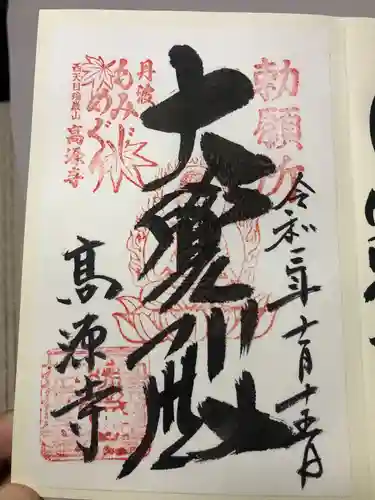 勅願所
令和三年十一月十五日
大寶殿
丹波
もみじめぐり
西天目瑞巌山
高源寺
高源寺